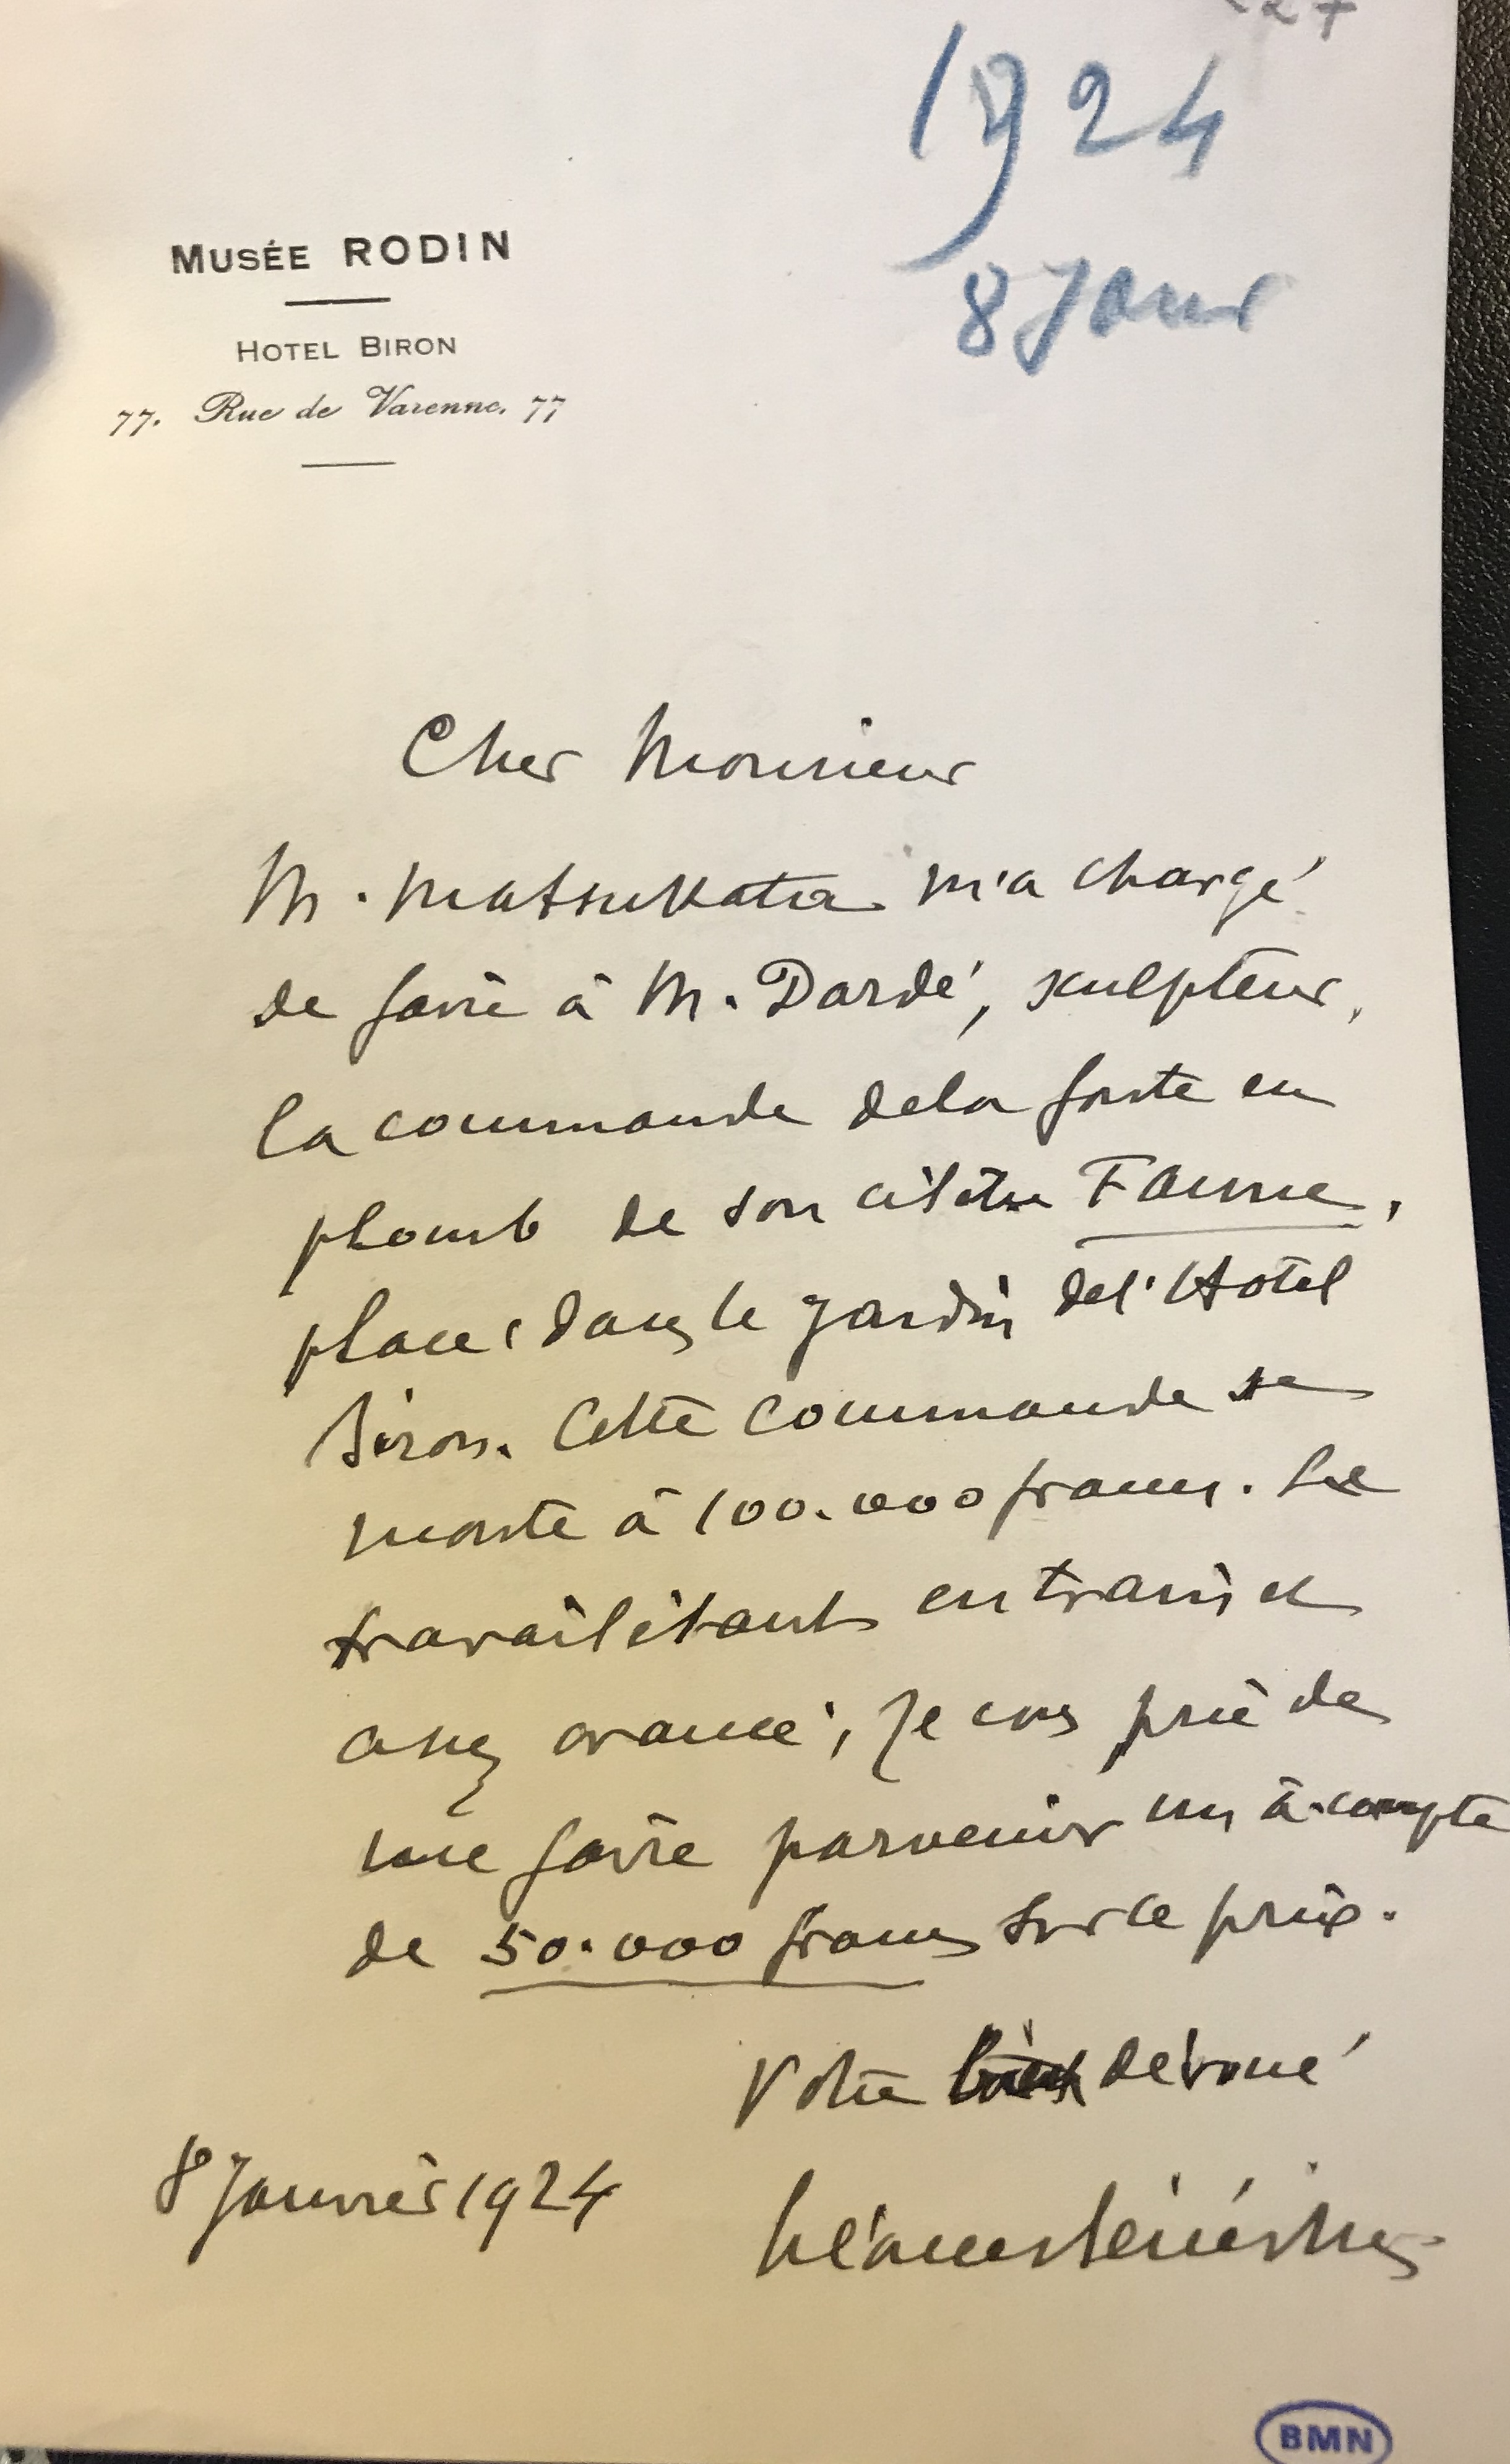 1924
8 Janv
MUSÉE RODIN
HOTEL BIRON
77. Rue de Varenne. 77
Cher Monsieur
M. Matsukata m'a chargé
de faire à M. Dardé, sculpteur,
la commande de la fonte en
plomb de son célèbre Faune,
placé dans le jardin de l'Hotel
Biron. Cette commande se
monte à 100.000 francs. Le
travail étant en train et
assez avancé, je vous prie de
me faire parvenir un à-compte
de 50.000 francs sur ce prix.
Votre dévoué
8 Janvier 1924
Léonce Bénédite
BMN